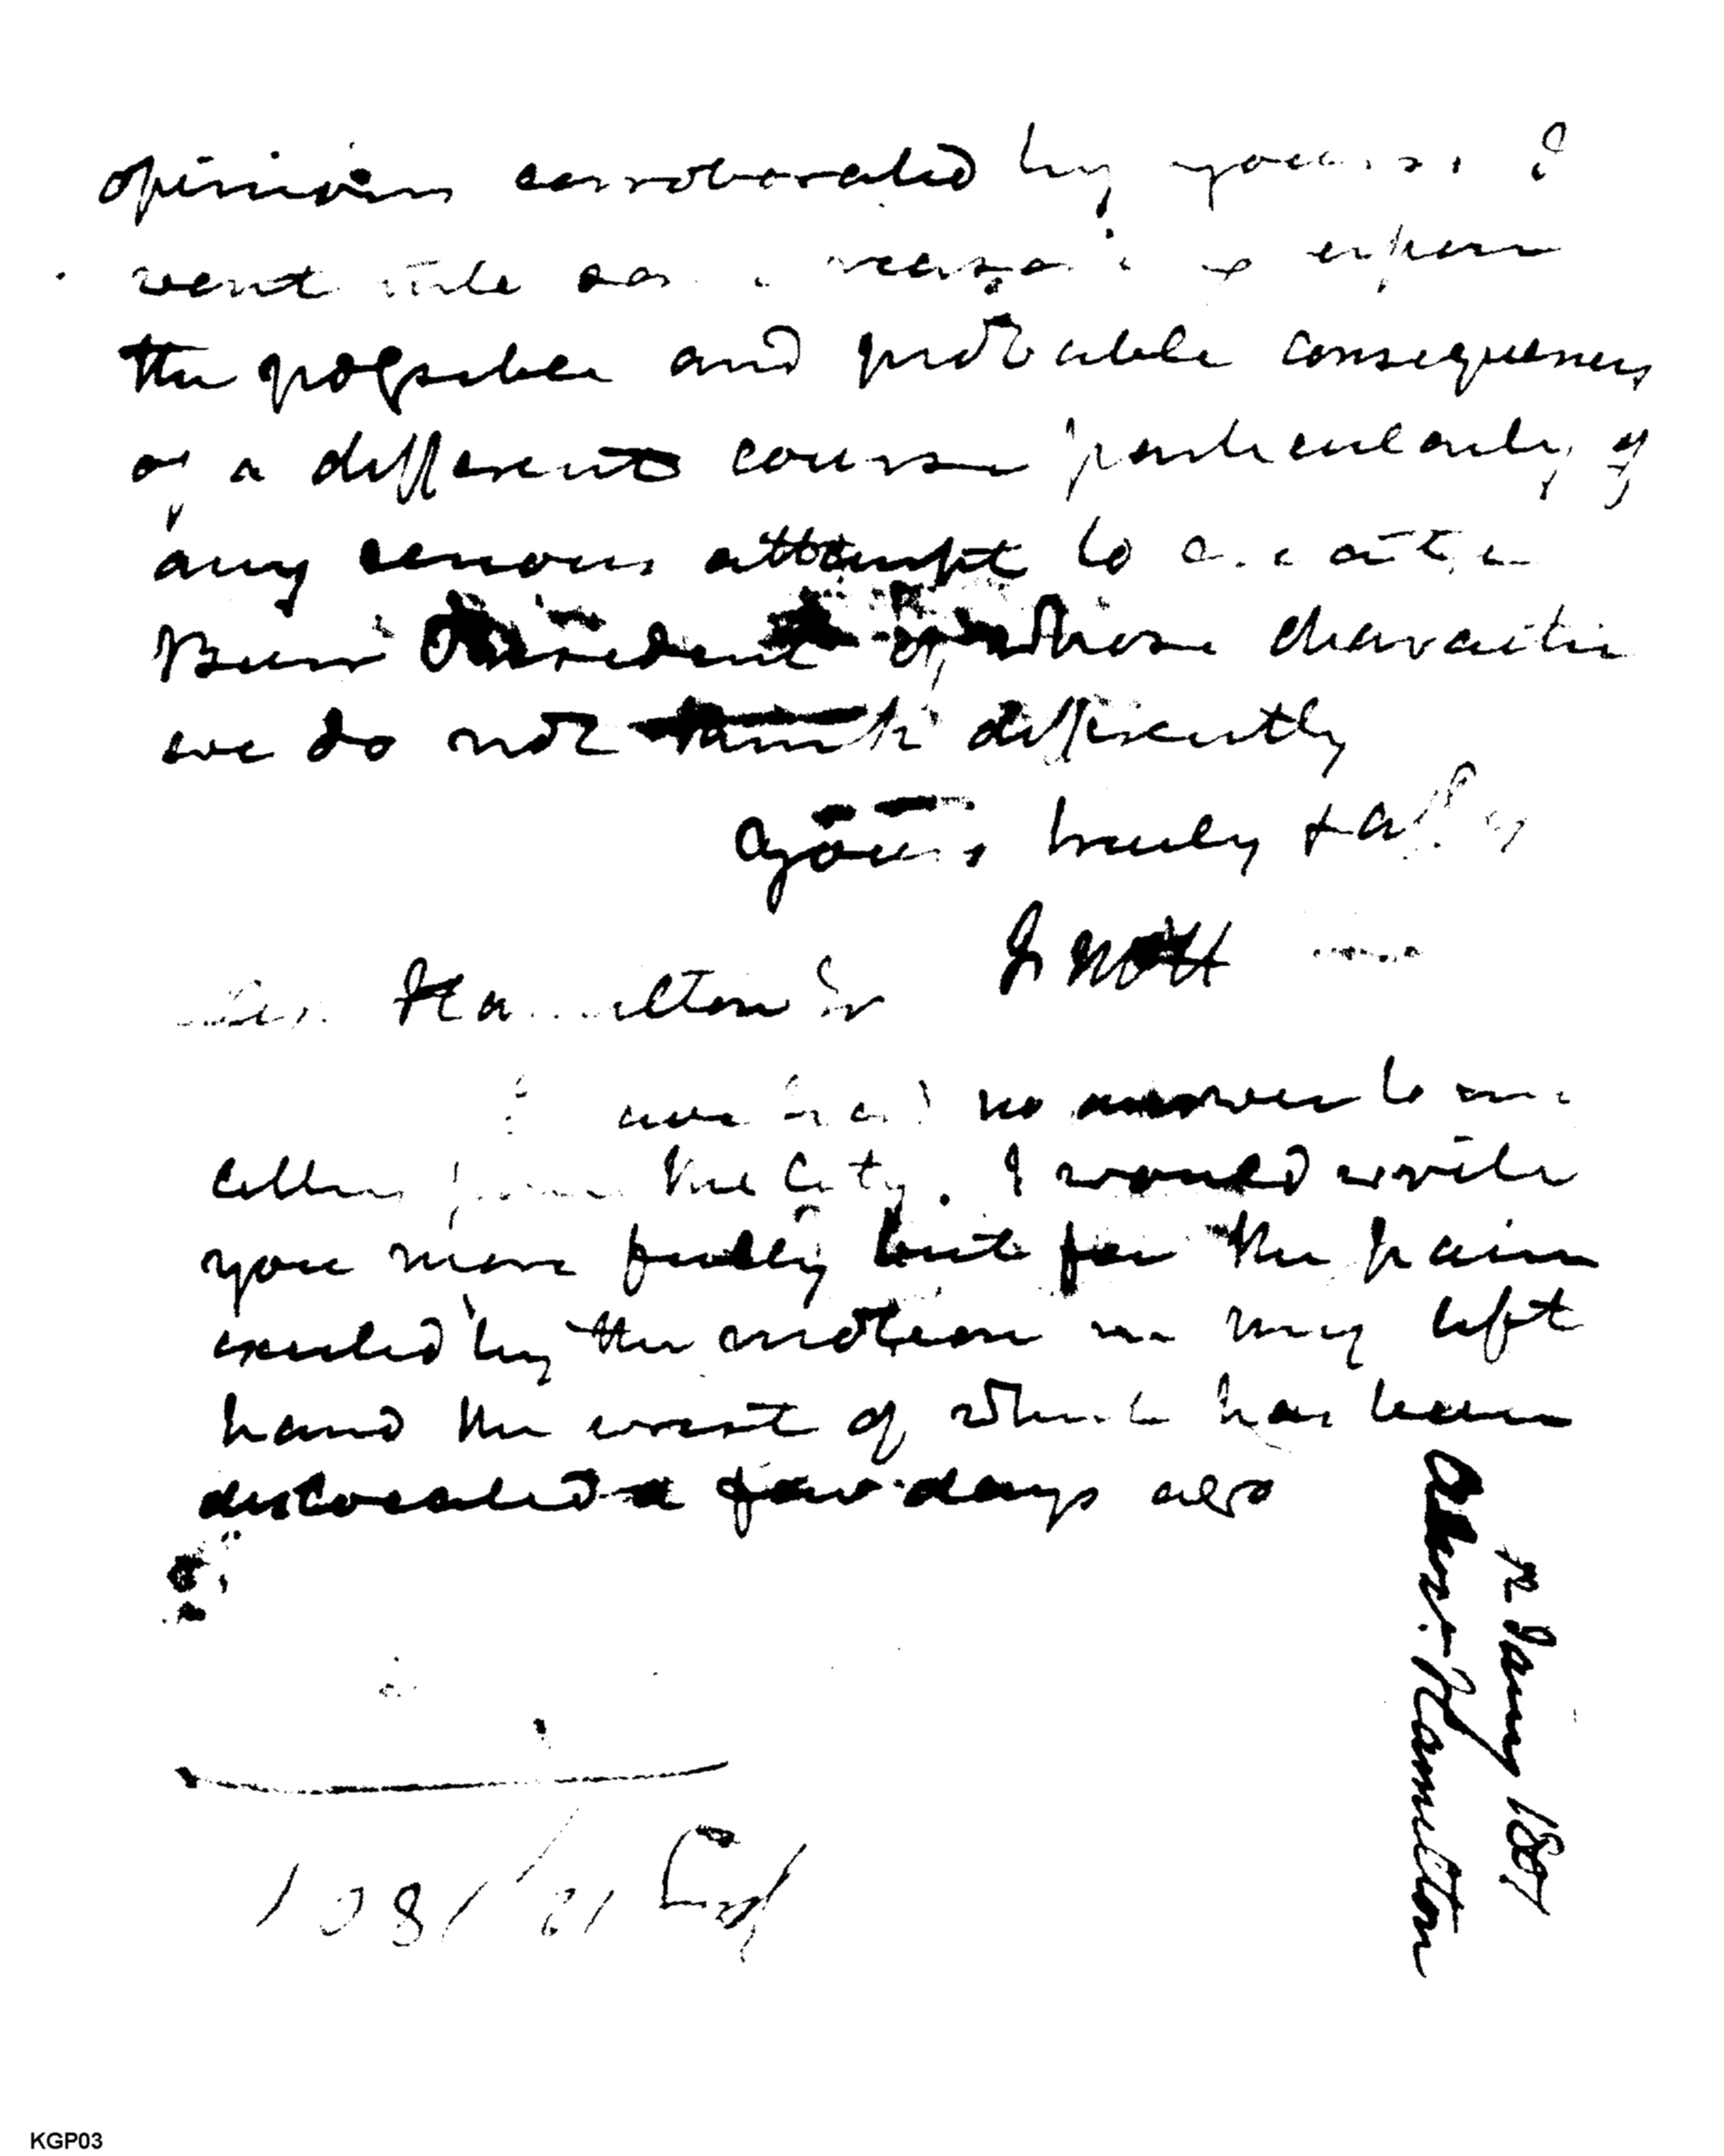 opinion corroborated by yours. I
went into as reasoning upon
the possible and probable consequences
of a different course particularly of
any serious attempt to create
Burr President of whose character
we do not think differently
Yours truly & aff
Hamilton
I have had no answer to
letters from the City. I would write
you more fully but for the pain
excited by the motion in my left
hand the wrist of which has been
dislocated a few days ago
Alexr. Hamilton
Jany 180
KGP03